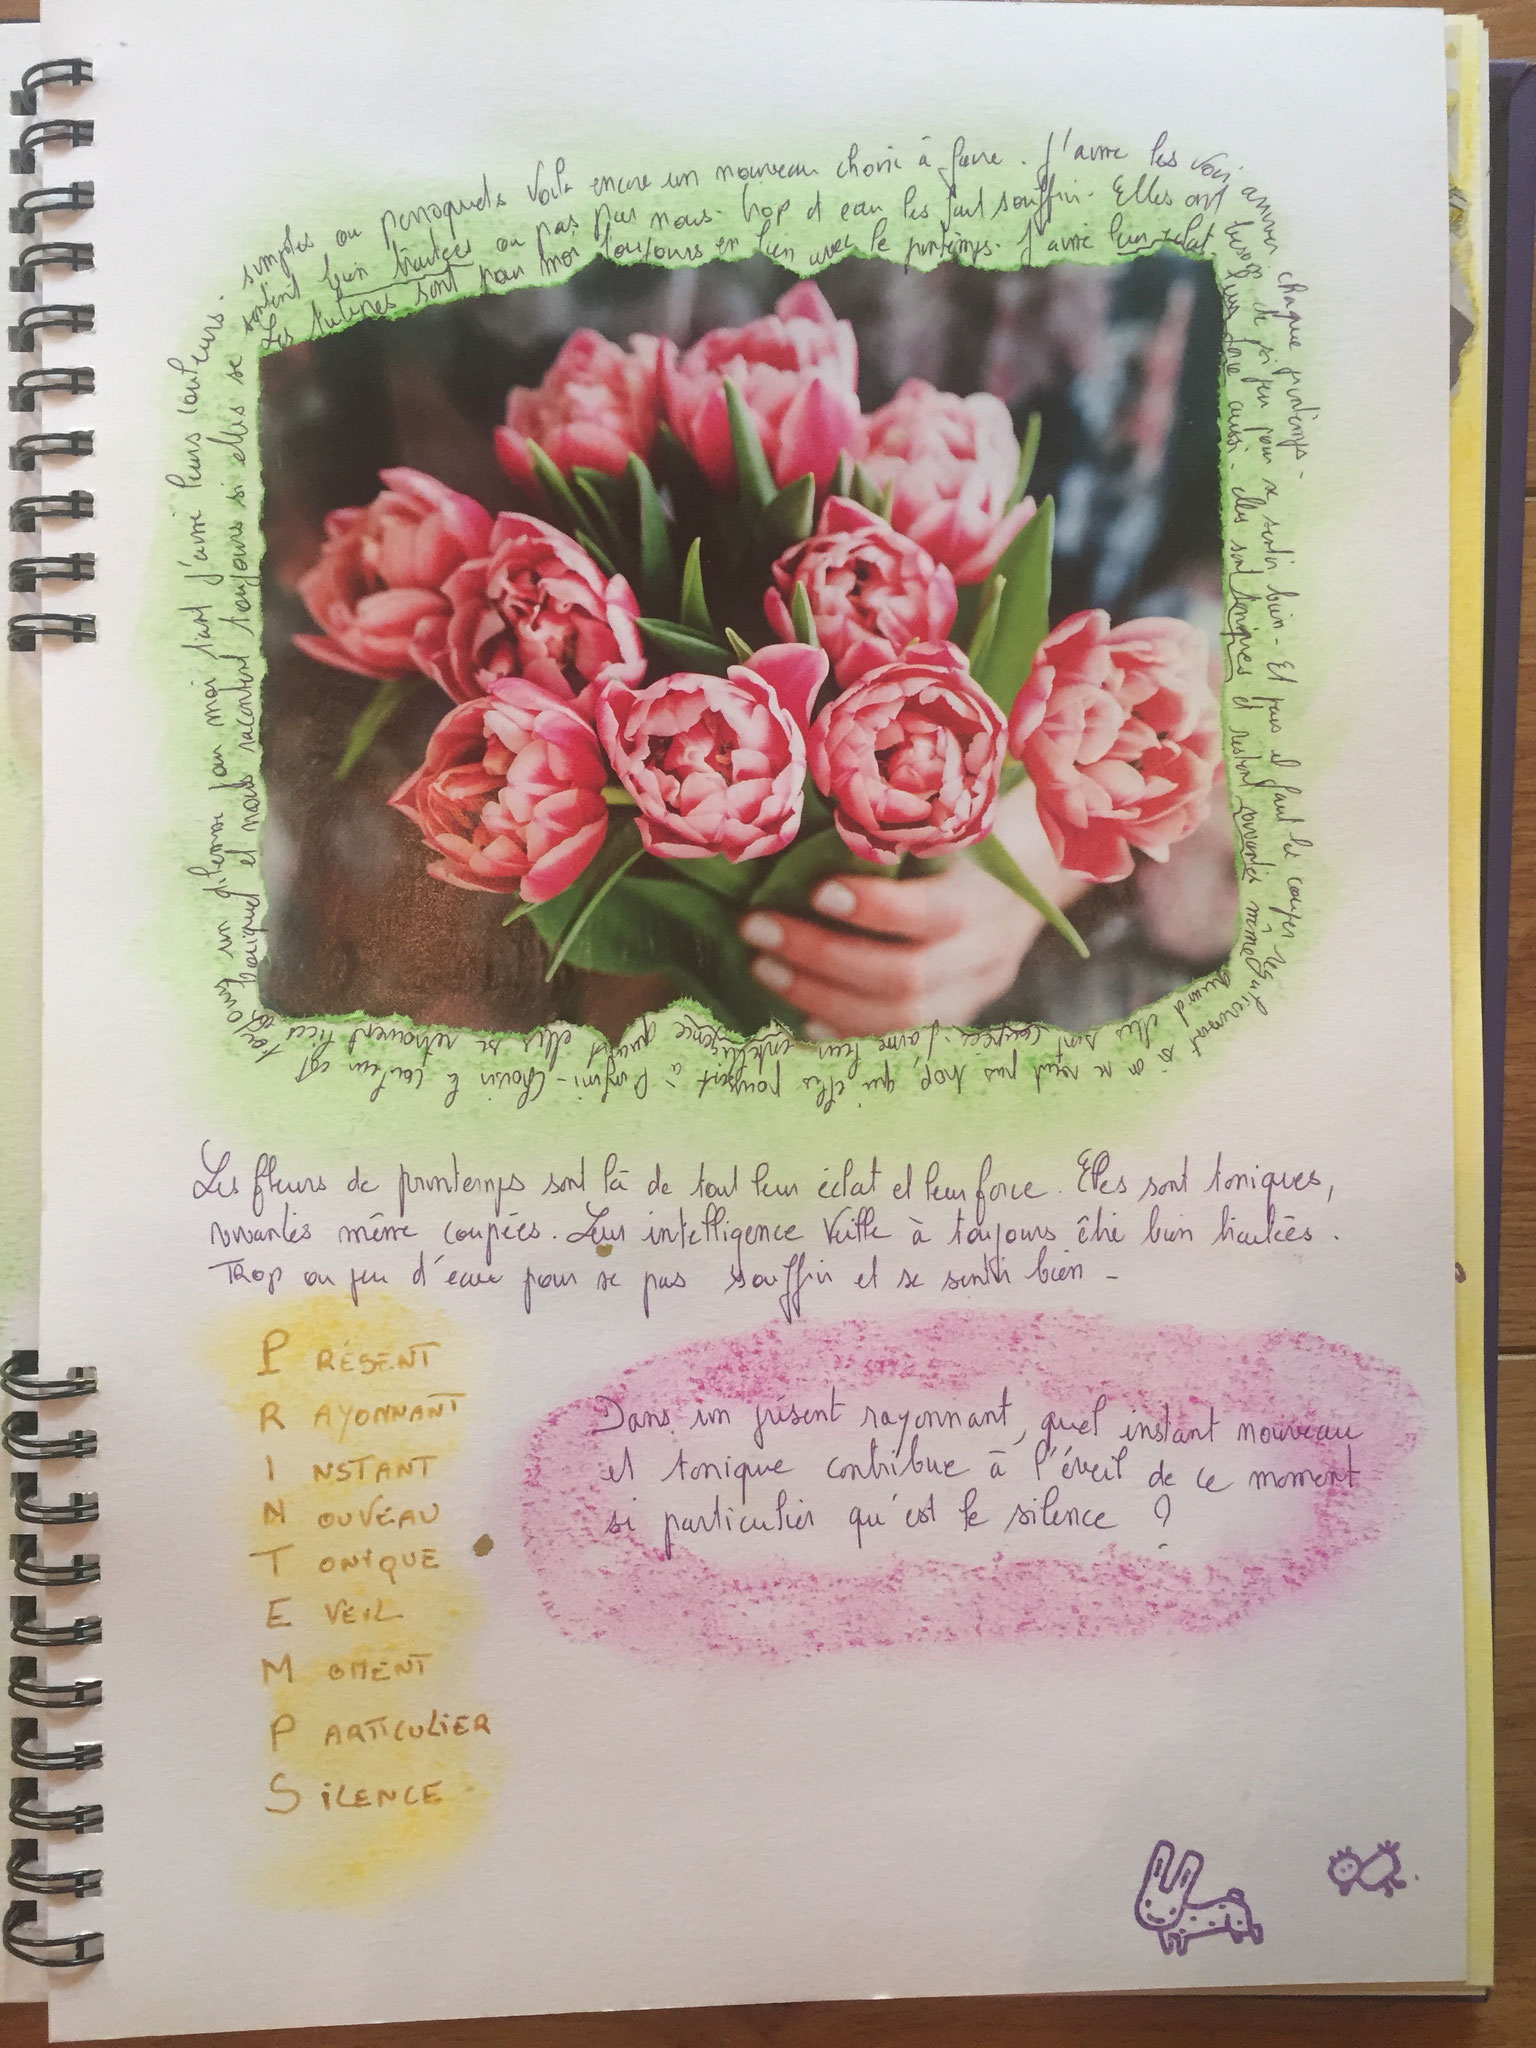 Les tulipes sont pour moi toujours en lien avec le printemps. J'aime leur éclat.
leur force aussi. elles sont toniques et restent vivantes même
quand elles sont coupées. J'aime leur intelligence quand elles se retrouvent
bouquet et nous racontent toujours si elles se
sentent bien traitées ou pas par nous. trop d'eau les fait souffrir. Elles ont
besoin de si peu pour se sentir bien. Et puis il faut les couper
si on ne veut pas trop, qu'elles poussent à l'infini. Choisir la couleur est
toujours un dilemme pour moi tant j'aime leurs couleurs.
simples ou perroquets Voilà encore un nouveau choix à faire. J'aime les voir arriver
chaque printemps.
Les fleurs de printemps sont là de tout leur éclat et leur force. Elles sont toniques,
vivantes même coupées. Leur intelligence veille à toujours être bien traitées.
Trop ou peu d'eau pour se pas souffrir et se sentir bien -
PRÉSENT
RAYONNANT
INSTANT
NOUVEAU
TONIQUE
EVEIL
MOMENT
PARTICULIER
SILENCE
Dans un présent rayonnant, quel instant nouveau
et tonique contribue à l'éveil de ce moment
si particulier qu'est le silence ?